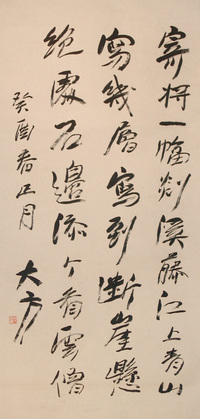 寄將一幅剡溪藤江上青山
寫幾層寫到斷崖懸
絕處石邊添个看雲僧
癸酉春正月 大方